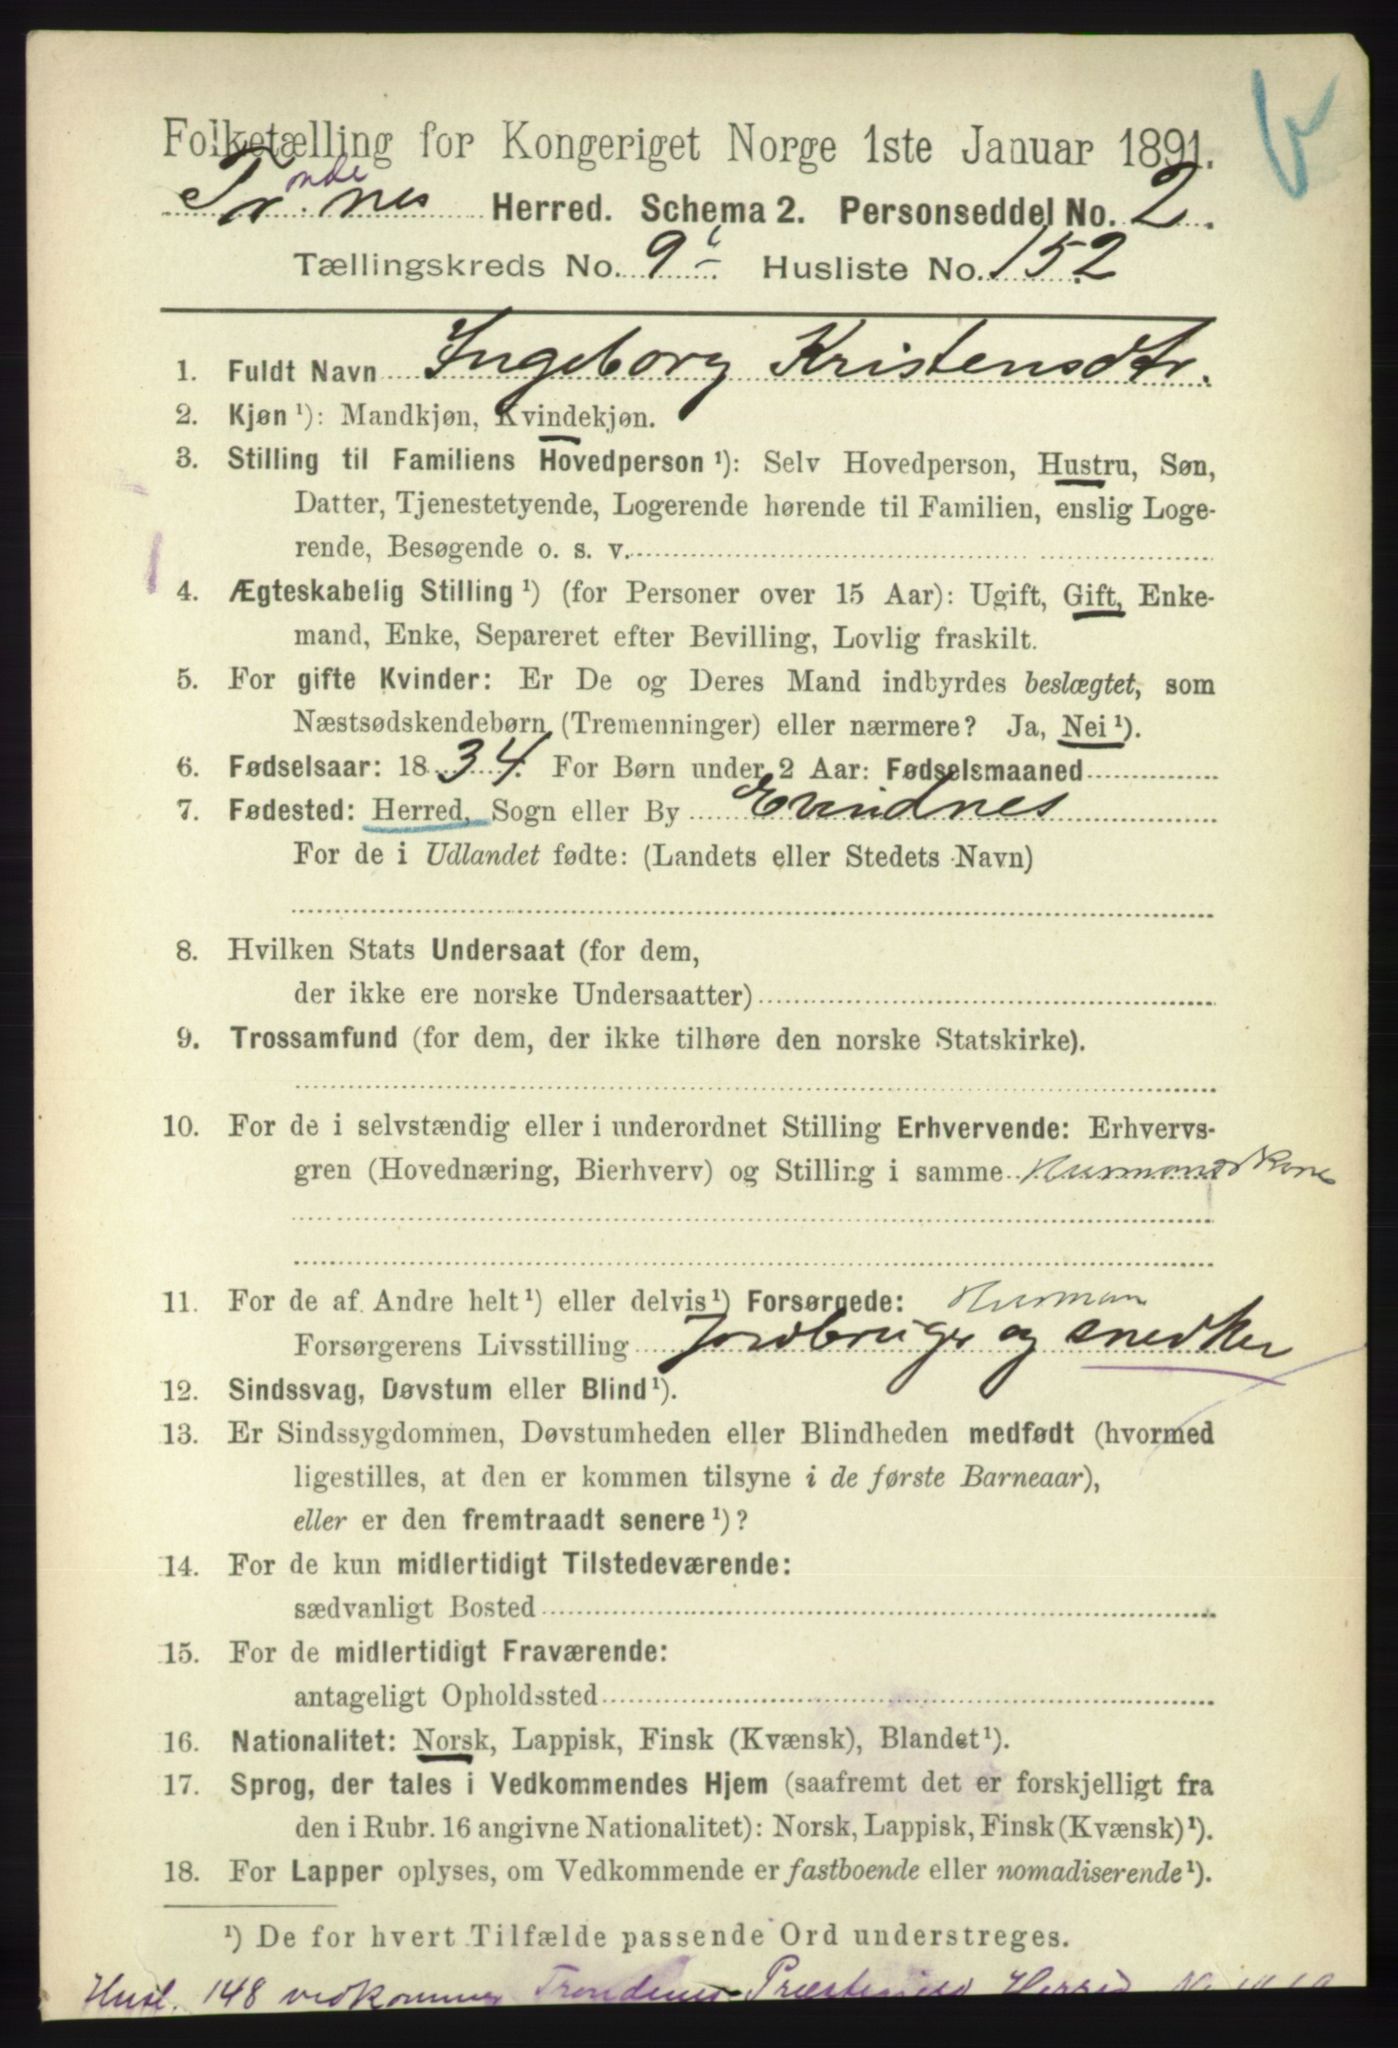 Folketælling for Kongeriget Norge 1ste Januar 1891.
Tr.onde nes Herred. Schema 2. Personseddel No. 2.
Tællingskreds No. 9 - Husliste No. 152
1. Fuldt Navn Ingeborg Kristensdtr.
2. Kjøn ¹): Mandkjøn, Kvindekjøn.
3. Stilling til Familiens Hovedperson ¹): Selv Hovedperson, Hustru, Søn,
Datter, Tjenestetyende, Logerende hørende til Familien, enslig Loge-
rende, Besøgende o. s. v.
4. Ægteskabelig Stilling ¹) (for Personer over 15 Aar): Ugift, Gift, Enke-
mand, Enke, Separeret efter Bevilling, Lovlig fraskilt.
5. For gifte Kvinder: Er De og Deres Mand indbyrdes beslægtet, som
Næstsødskendebørn (Tremenninger) eller nærmere? Ja, Nei ¹).
6. Fødselsaar: 1834. For Børn under 2 Aar: Fødselsmaaned
7. Fødested: Herred, Sogn eller By Evindnes
For de i Udlandet fødte: (Landets eller Stedets Navn)
8. Hvilken Stats Undersaat (for dem,
der ikke ere norske Undersaatter)
9. Trossamfund (for dem, der ikke tilhøre den norske Statskirke).
10. For de i selvstændig eller i underordnet Stilling Erhvervende: Erhvervs-
gren (Hovednæring, Bierhverv) og Stilling i samme Husmandskone
11. For de af Andre helt ¹) eller delvis ¹) Forsørgede: Husman
Forsørgerens Livsstilling Jordbruger og snedker
12. Sindssvag, Døvstum eller Blind ¹).
13. Er Sindssygdommen, Døvstumheden eller Blindheden medfødt (hvormed
ligestilles, at den er kommen tilsyne i de første Barneaar),
eller er den fremtraadt senere ¹)?
14. For de kun midlertidigt Tilstedeværende:
sædvanligt Bosted
15. For de midlertidigt Fraværende:
antageligt Opholdssted
16. Nationalitet: Norsk, Lappisk, Finsk (Kvænsk), Blandet ¹).
17. Sprog, der tales i Vedkommendes Hjem (saafremt det er forskjelligt fra
den i Rubr. 16 angivne Nationalitet): Norsk, Lappisk, Finsk (Kvænsk) ¹).
18. For Lapper oplyses, om Vedkommende er fastboende eller nomadiserende ¹).
¹) De for hvert Tilfælde passende Ord understreges.
Husl. 148 vedkommer Trondenes Præstegjeld Herred